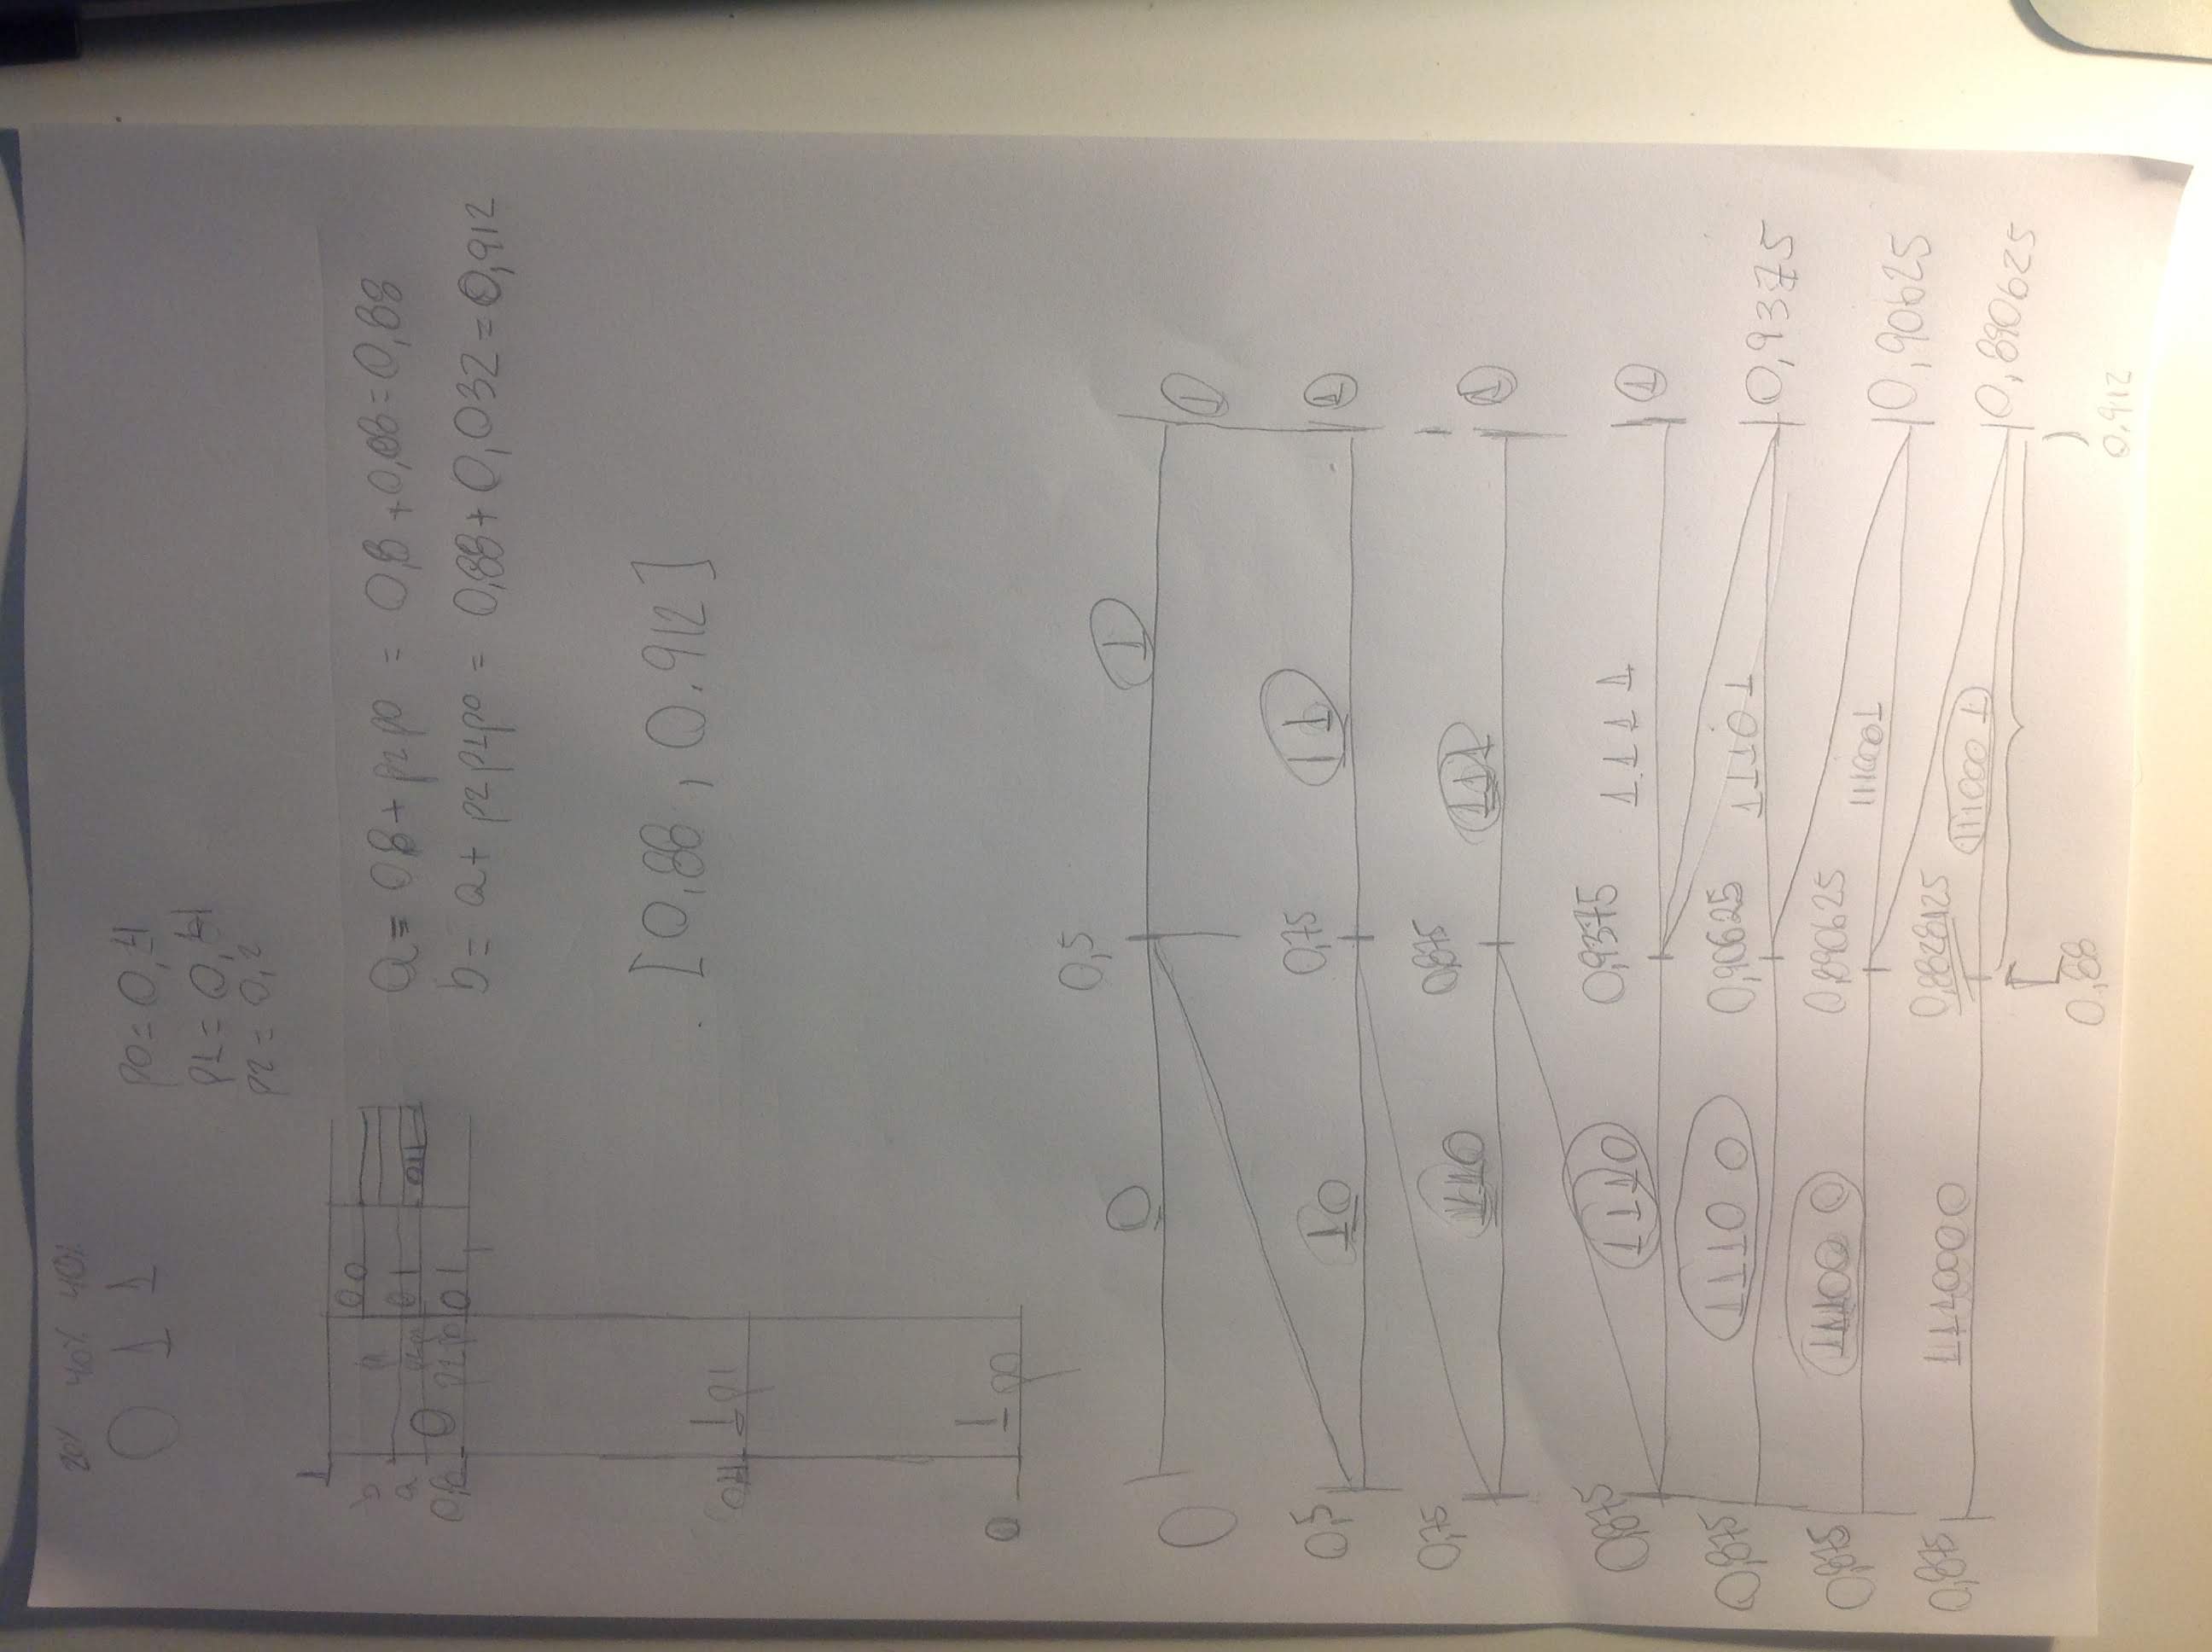 20% 40% 40%
0 1 1
p0 = 0,4
p1 = 0,4
p2 = 0,2
1
b
00
a
01
011
0,8
0
p2p0
01
a = 0,8 + p2p0 = 0,8 + 0,08 = 0,88
b = a + p2p1p0 = 0,88 + 0,032 = 0,912
[0,88 , 0.912]
0,4
1 p1
0
1 p0
0,5
0
1
0
1
0,5
10
0,75
11
1
0,75
110
0,875
111
1
0,875
1110
0,9375
1111
1
0,875
11100
0,90625
11101
0,9375
0,875
111000
0,890625
111001
0,90625
0,875
1110000
0,8828125
1110001
0,890625
[
)
0,88
0.912